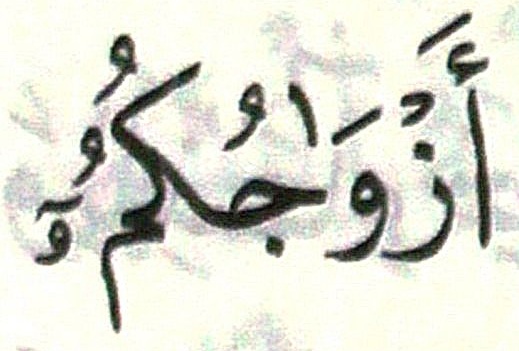 أَزْوَٰجُكُمُۥٓ